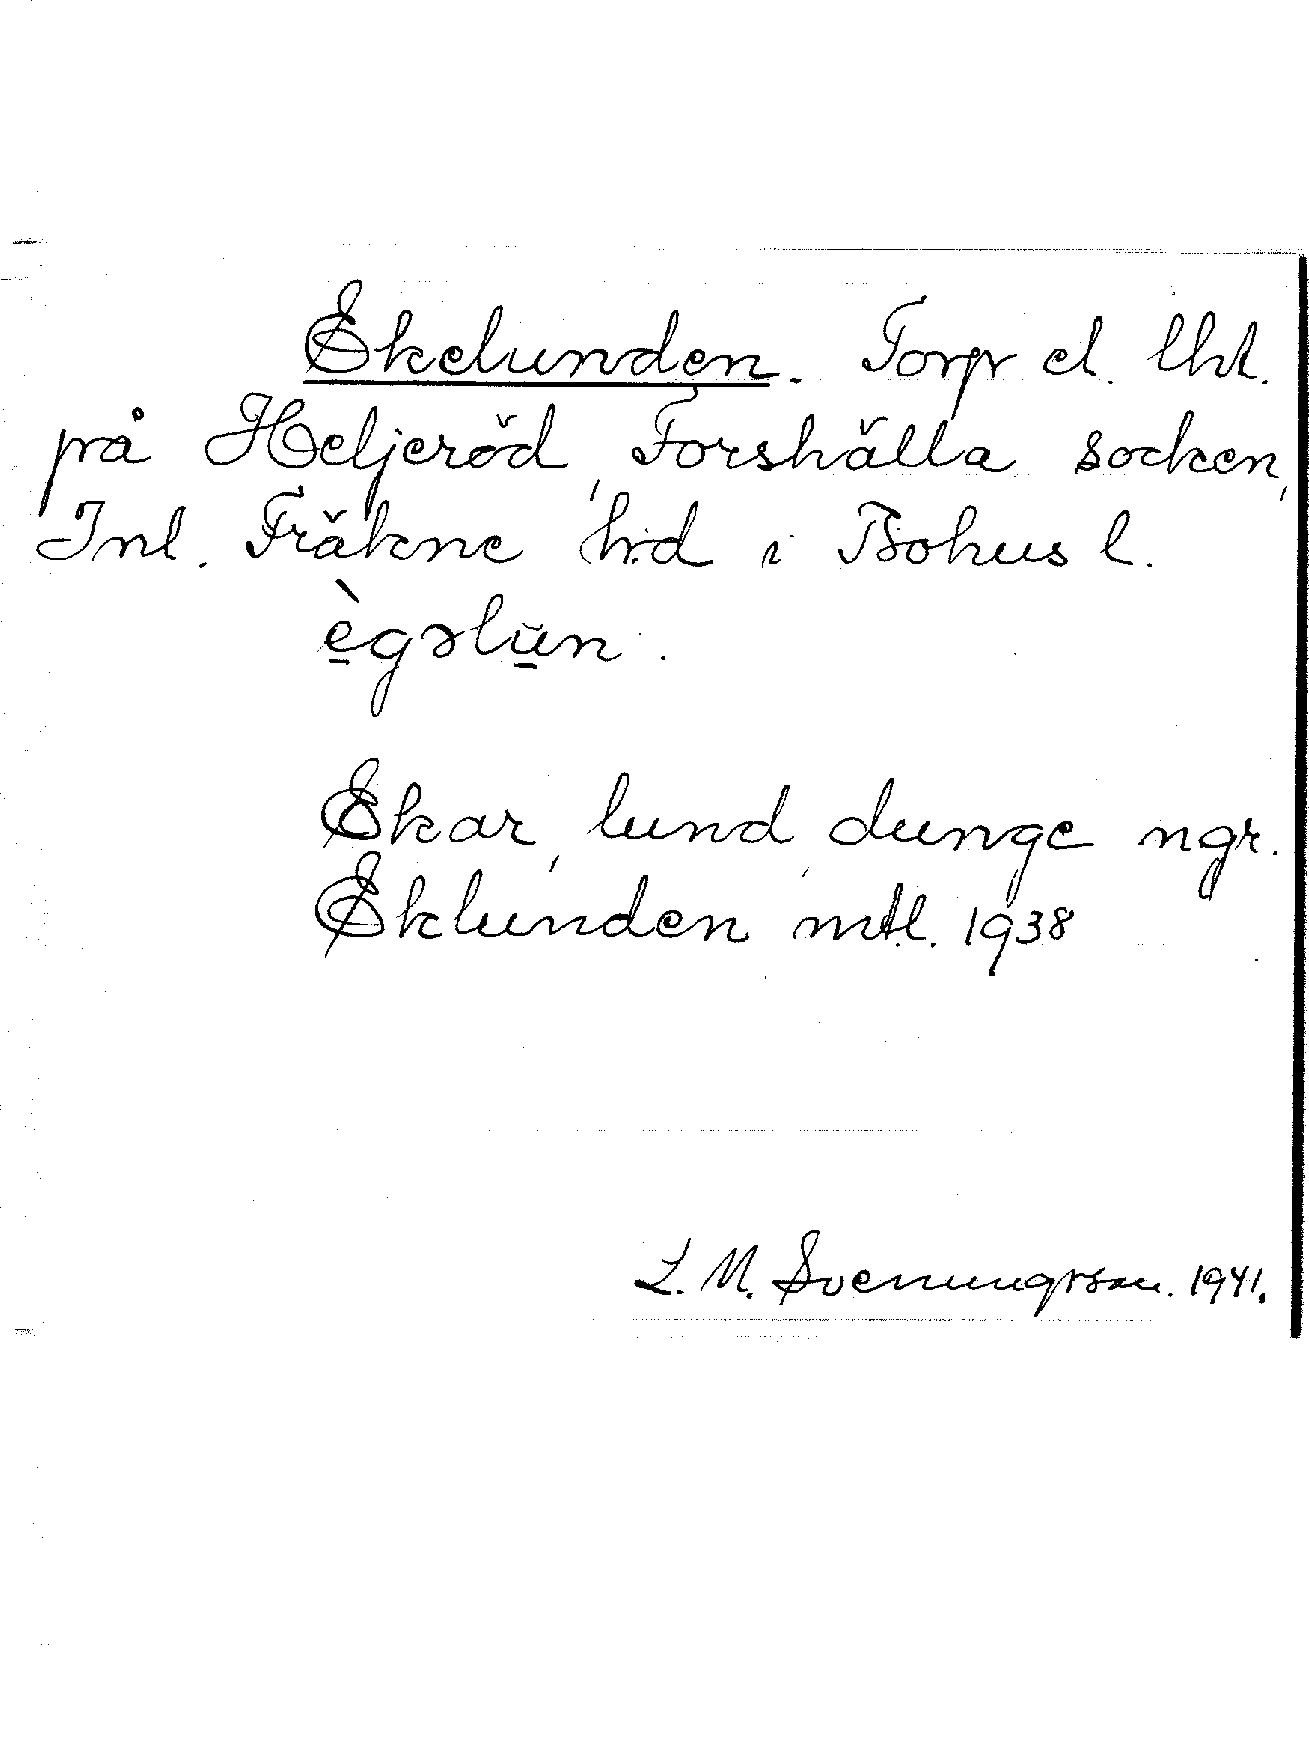 Ekelunden. Torp el. lht.
på Heljeröd, Forshälla socken,
Inl. Fräkne hrd i Bohus l.
è̱gəlu̱n.
Ekar, lund, dunge ngr.
Eklunden mtl. 1938
L. M. Svenungsson. 1941.